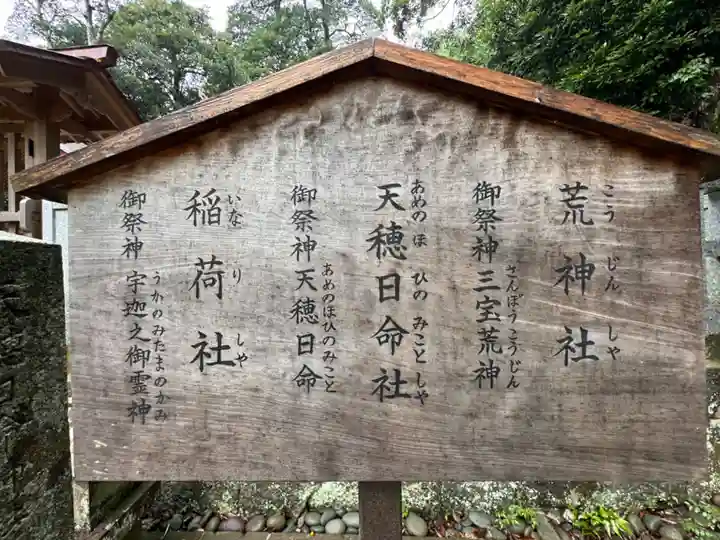 荒神社
こうじんしゃ
御祭神 三宝荒神
さんぼうこうじん
天穂日命社
あめのほひのみことしゃ
御祭神 天穂日命
あめのほひのみこと
稲荷社
いなりしゃ
御祭神 宇迦之御霊神
うかのみたまのかみ